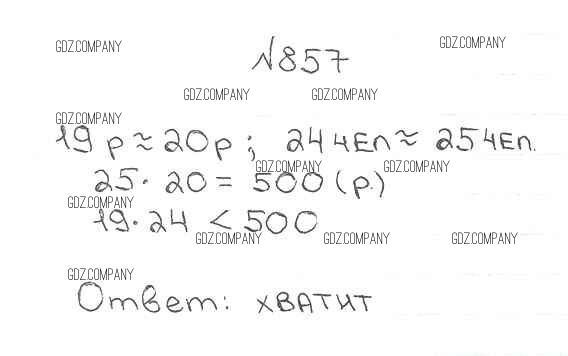 GDZ.COMPANY GDZ.COMPANY
№857
GDZ.COMPANY GDZ.COMPANY
GDZ.COMPANY
19 р ≈ 20р ; 24 чел ≈ 25 чел.
GDZ.COMPANY GDZ.COMPANY
25 · 20 = 500 (р.)
GDZ.COMPANY
19 · 24 < 500
GDZ.COMPANY GDZ.COMPANY GDZ.COMPANY
GDZ.COMPANY
Ответ: хватит